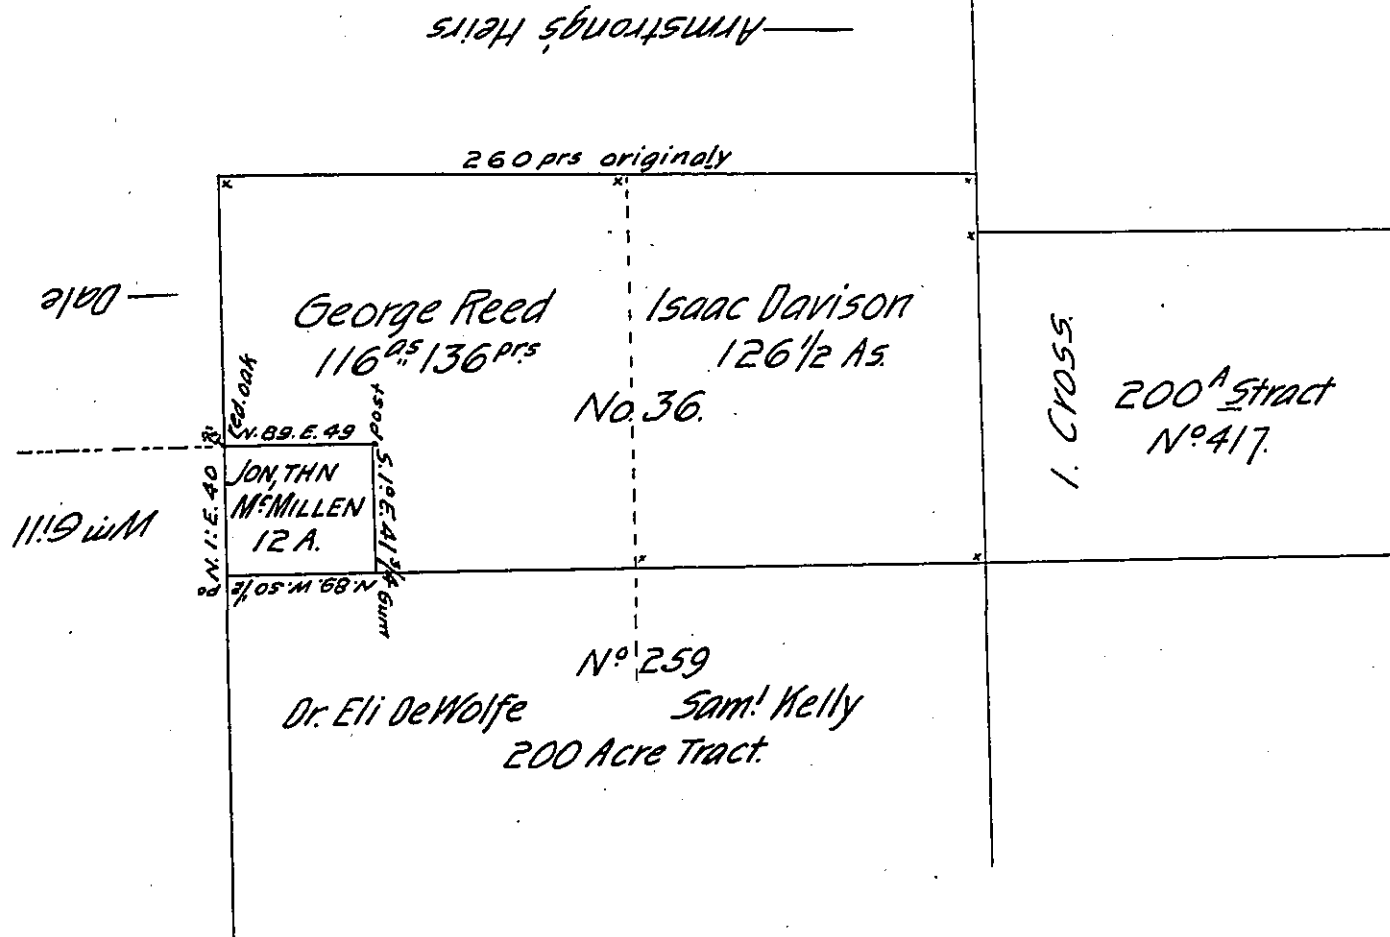 Armstrong's Heirs
260 prs originaly
Dale
George Reed
116 as 136 prs
Isaac Davison
126 1/2 As.
No. 36.
I. Cross.
200 A Stract
Nº 417.
red. oak
N. 89. E. 49
post
JON,THN
McMILLEN
12 A.
N. 1º E. 40
S. 1º E. 41 3/4
Gum
N. 89. W. 50 1/2
po
Wm Gill
Nº 259
Dr. Eli DeWolfe
Saml Kelly
200 Acre Tract.